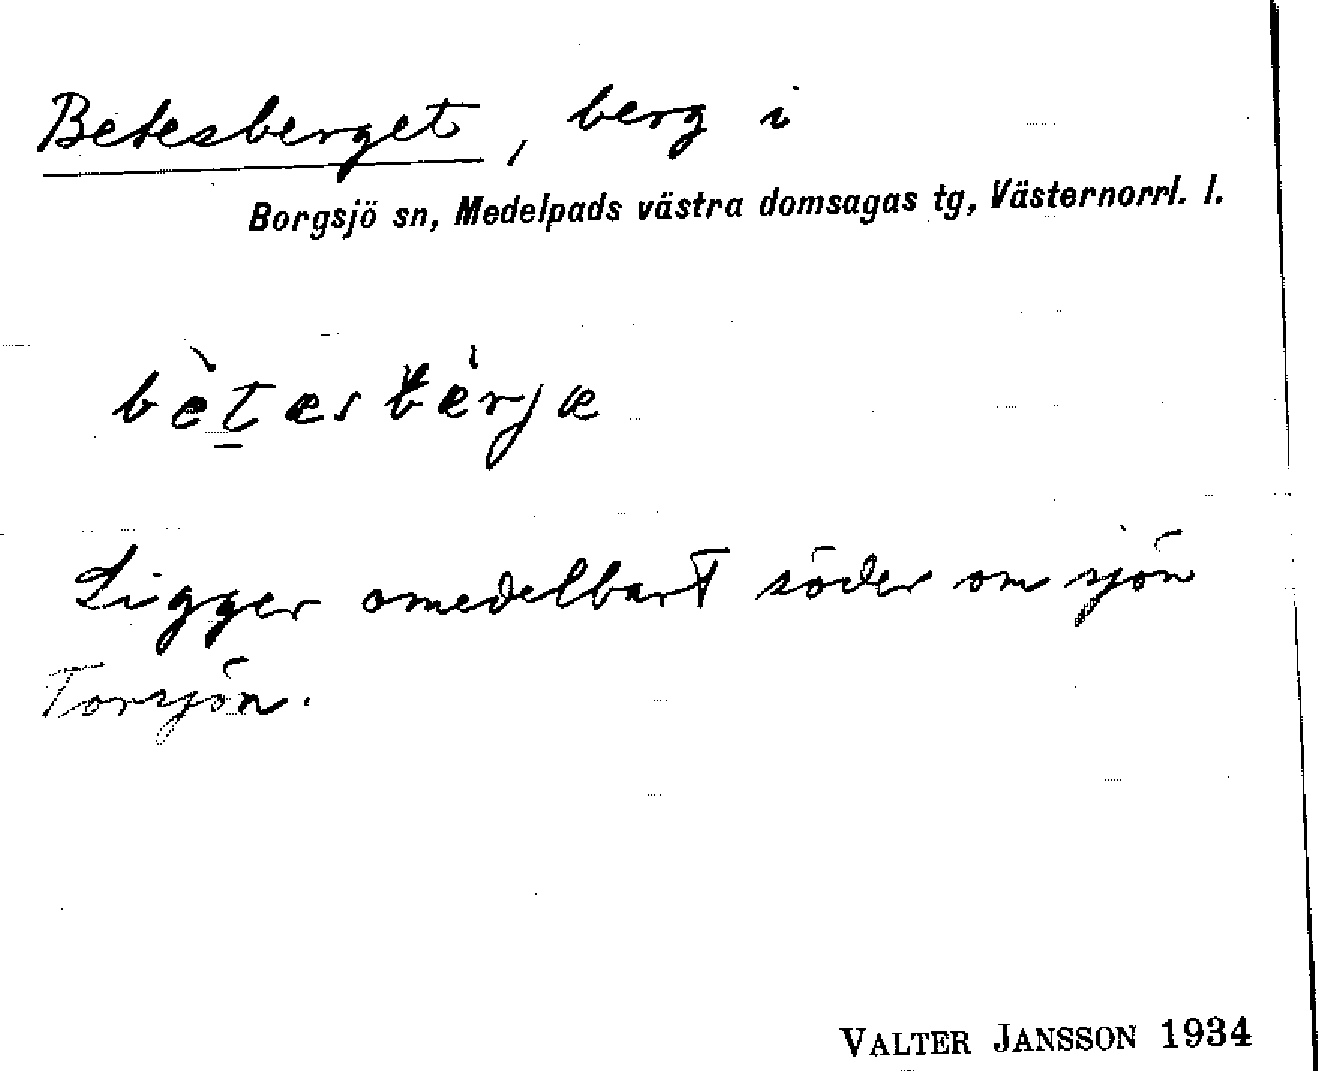 Betesberget, berg i
Borgsjö sn, Medelpads västra domsagas tg, Västernorrl. l.
bè̱tæsbèrjæ
Ligger omedelbart söder om sjön
Torsjön.
VALTER JANSSON 1934